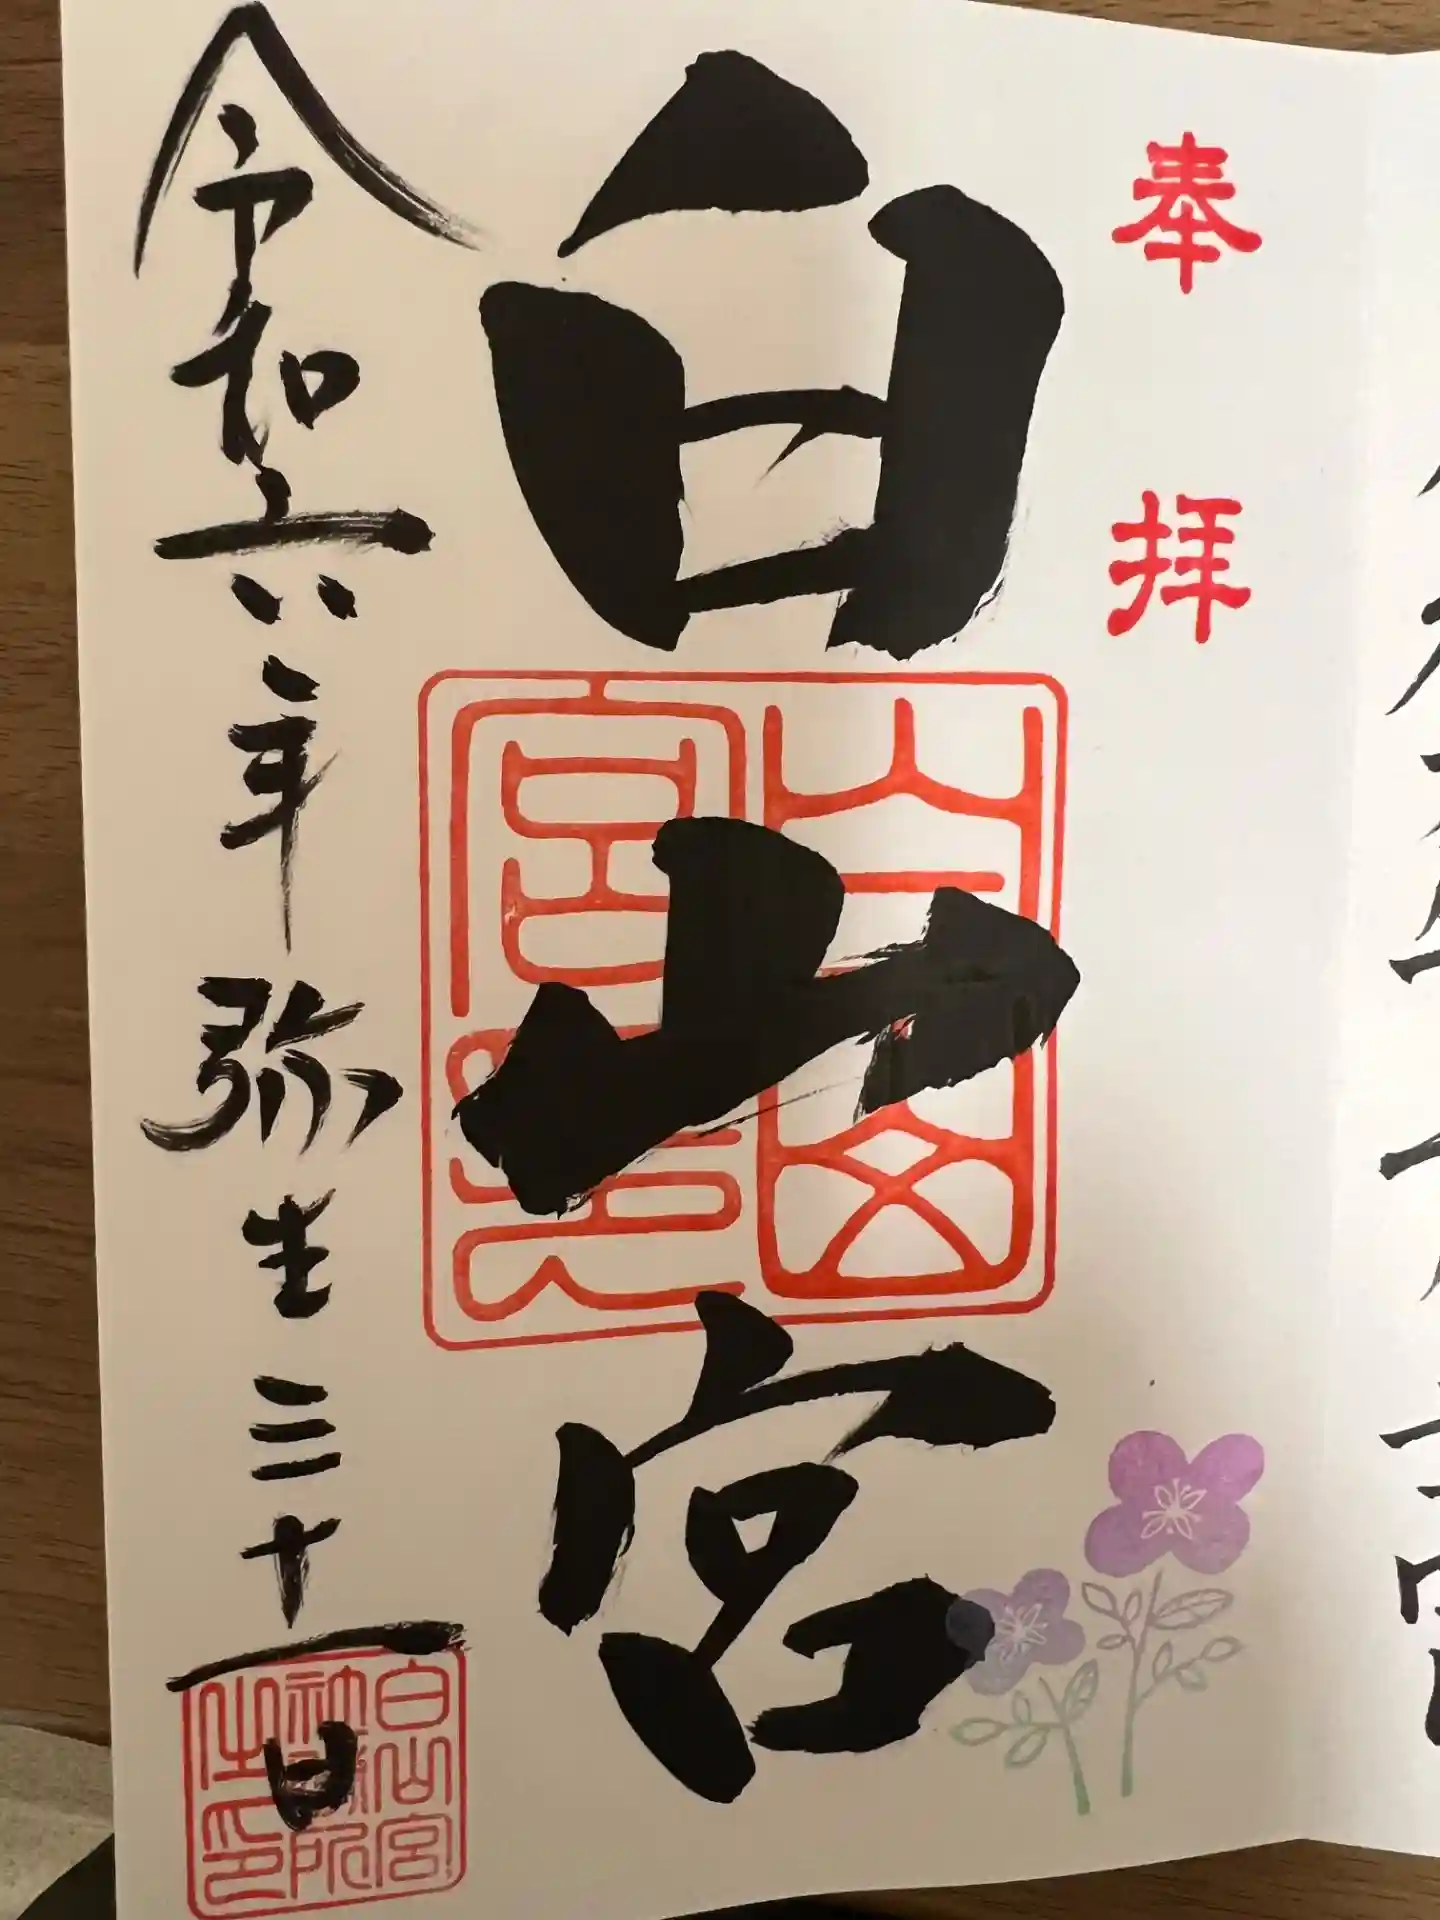 奉拝
白山宮
令和六年弥生三十一日
白山宮
社務所
之印